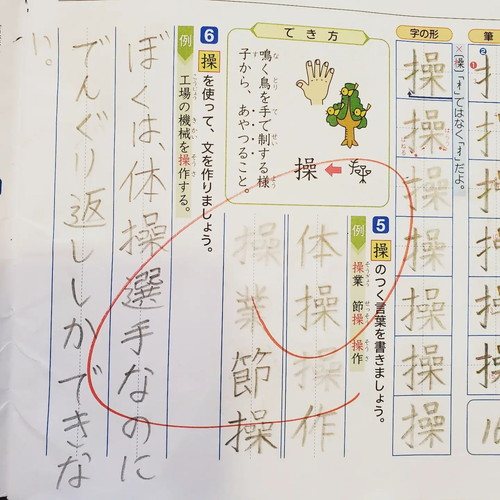 筆
字の形
×〔木〕「木」ではなく「扌」だよ。
操
操
操
操
操
操
操
5 操のつく言葉を書きましょう。
例 操業 節操 操作
そうぎょう せっそう そうさ
体操 操作
操業 節操
でき方
鳴く鳥を手で制する様
子から、あやつること。
操
6 操を使って、文を作りましょう。
例 工場の機械を操作する。
ぼくは、体操選手なのに
でんぐり返ししかできな
い。